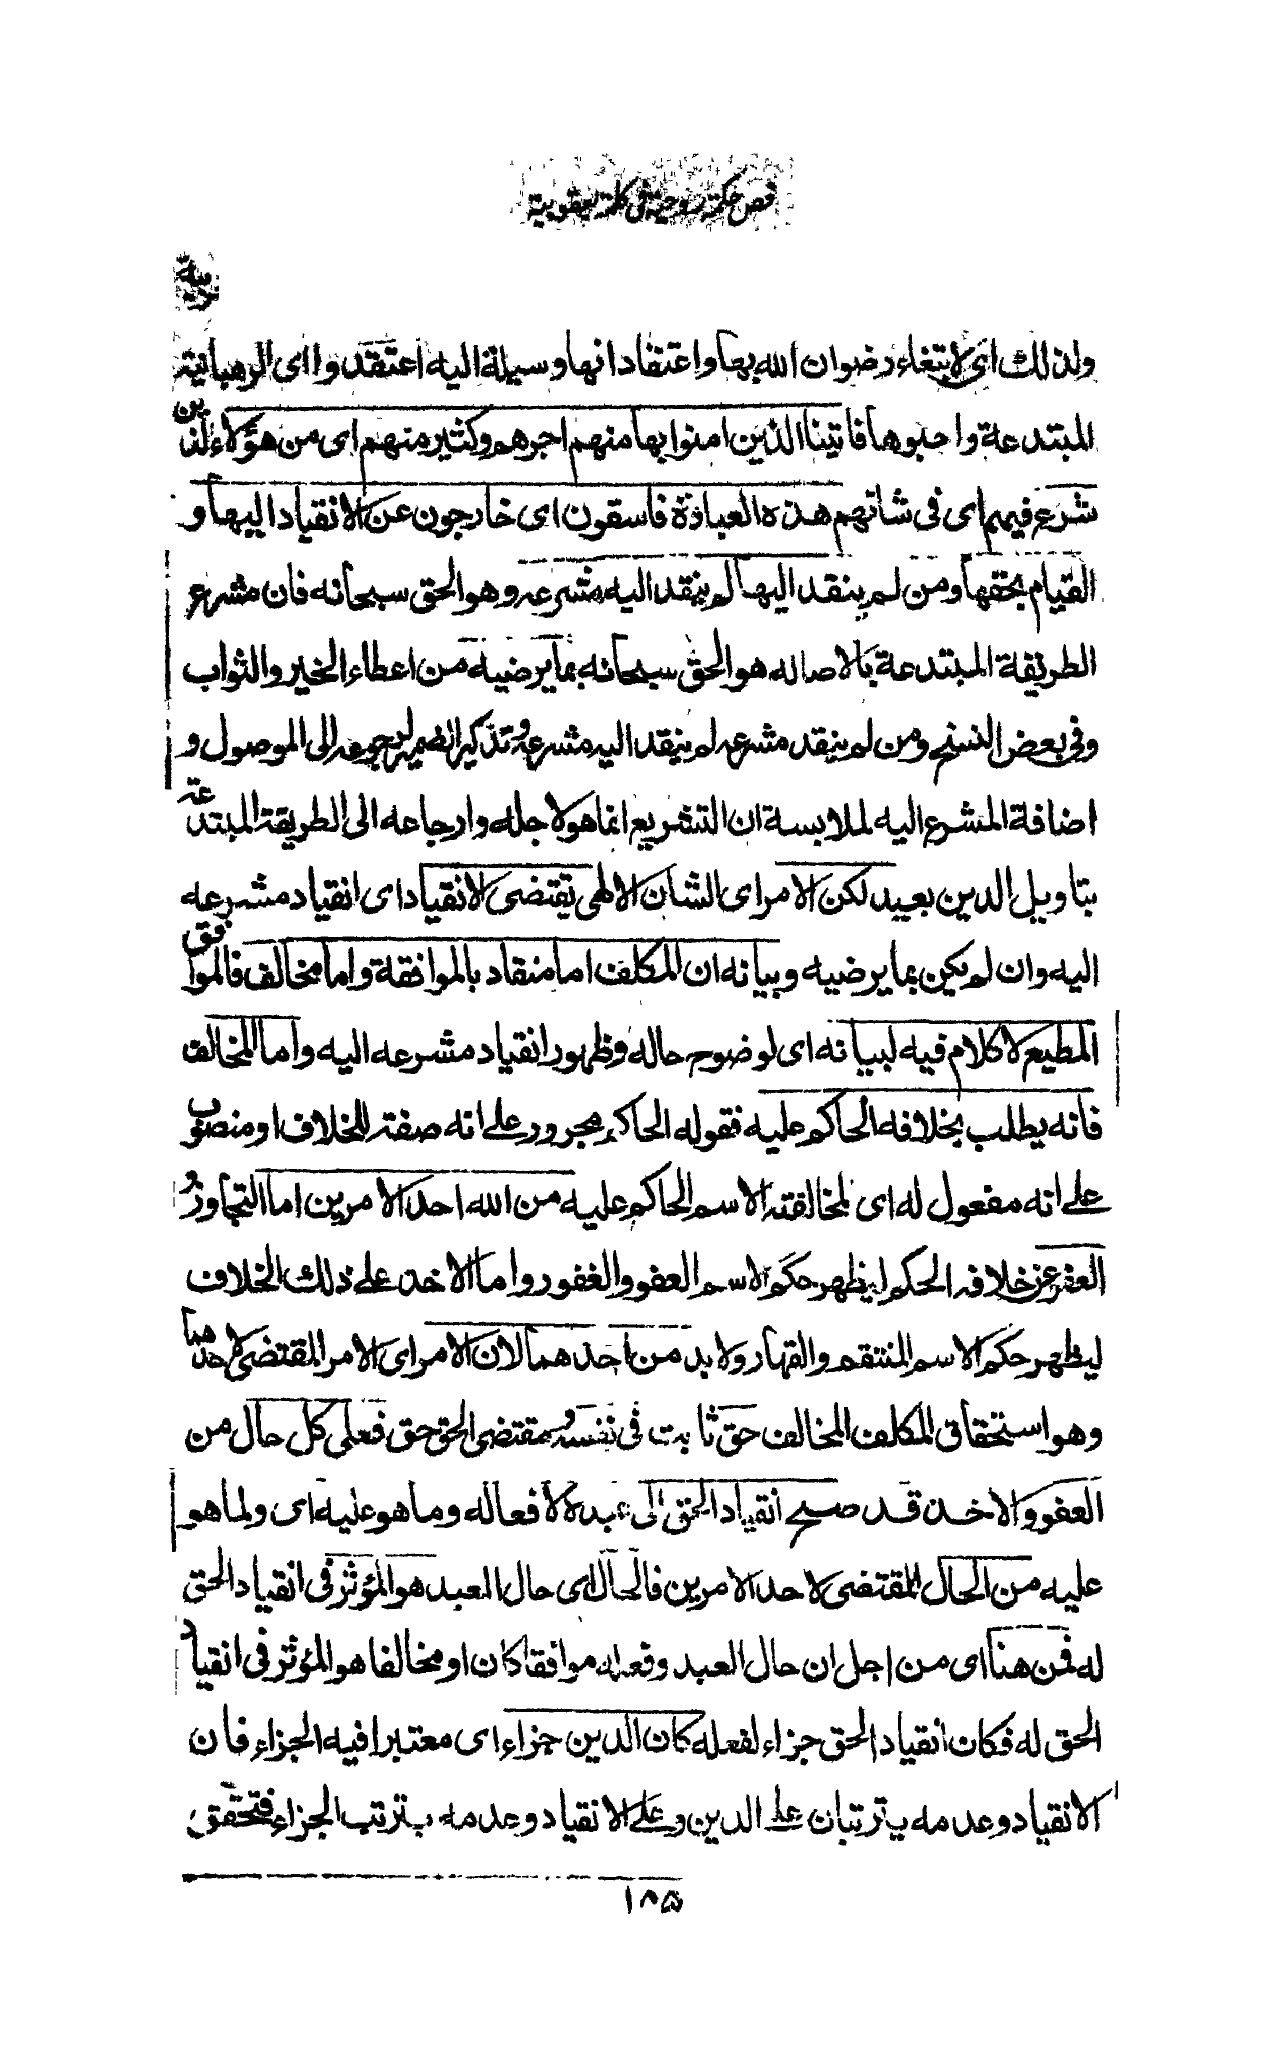 فص حكمة روحية فى كلمة يعقوبية
ولذلك اى لابتغاء رضوان الله بها واعتقاد انها وسيلة اليه اعتقدوا اى الرهبانية
المبتدعة واحبوها فاتينا الذين امنوا بها منهم اجرهم وكثير منهم اى من هؤلاء الذين
شرع فيهم اى فى شانهم هذه العبادة فاسقون اى خارجون عن الانقياد اليها و
القيام بحقها ومن لم ينقد اليها لم ينقد اليه مشرعه وهو الحق سبحانه فان مشرع
الطريقة المبتدعة بالاصاله هو الحق سبحانه بما يرضيه من اعطاء الخير والثواب
وفى بعض النسخ ومن لم ينقد مشرعه لم ينقد اليه مشرعه وتذكير الضمير لرجوعه الى الموصول و
اضافة المشرع اليه لملابسة ان التشريع انما هو لاجله وارجاعه الى الطريقة المبتدعة
بتاويل الدين بعيد لكن الامر اى الشان الالهى يقتضى الانقياد اى انقياد مشرعه
اليه وان لم يكن بما يرضيه وبيانه ان المكلف اما منقاد بالموافقة واما مخالف فالموافق
المطيع لا كلام فيه لبيانه اى لوضوح حاله وظهور انقياد مشرعه اليه واما المخالف
فانه يطلب بخلافه الحاكم عليه فقوله الحاكم مجرور على انه صفة للخلاف او منصوب
على انه مفعول له اى لمخالفته الاسم الحاكم عليه من الله احد الامرين اما التجاوز و
العفو عن خلافه الحكم ليظهر حكم الاسم العفو والغفور واما الاخذ على ذلك الخلاف
ليظهر حكم الاسم المنتقم والقهار ولا بد من احدهما لان الامر اى الامر المقتضى لاحدهما
وهو استحقاق المكلف المخالف حق ثابت فى نفسه ومقتضى الحق حق فعلى كل حال من
العفو والاخذ قد صح انقياد الحق الى عبده لافعاله وما هو عليه اى ولما هو
عليه من الحال المقتضى لاحد الامرين فالحال اى حال العبد هو المؤثر فى انقياد الحق
له فمن هنا اى من اجل ان حال العبد وفعله موافقا كان او مخالفا هو المؤثر فى انقياد
الحق له فكان انقياد الحق جزاء لفعله كان الدين جزاء اى معتبرا فيه الجزاء فان
الانقياد وعدمه يترتبان على الدين وعلى الانقياد وعدمه يترتب الجزاء فتحقق
١٨۵